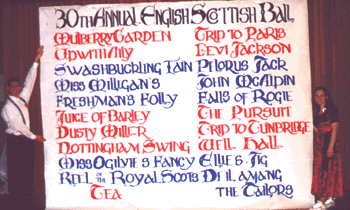 30th Annual English Scottish Ball,
Mulberry Garden Trip to Paris
Upwith Aily Levi Jackson
Swashbuckling Iain Pelorus Jack
Miss Milligan's John McAlpin
Freshman's Folly Falls of Rogie
Juice of Barley The Pursuit
Dusty Miller Trip to Tunbridge
Nottingham Swing Well Hall
Miss Ogilvie's Fancy Ellie's Jig
Reel of the Royal Scots Deil Amang
Tea the Tailors